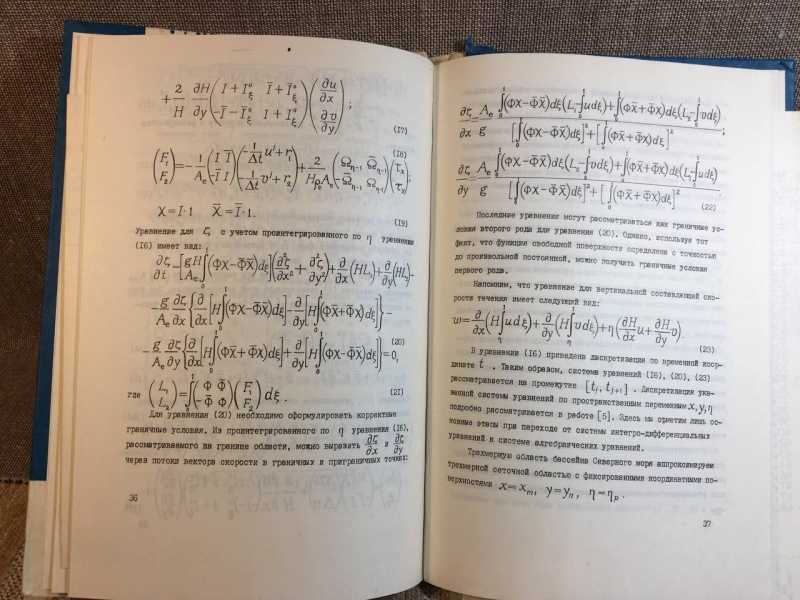 + 2/H ∂H/∂y ( I + I*ξ   Ī + Ī*ξ ; -Ī - Ī*ξ   I + I*ξ ) ( ∂u/∂x ; ∂v/∂y ) ; (17)
(F₁ ; F₂) = - 1/Aₑ (I Ī ; -Ī I) ( -1/Δt u' + r₁ ; -1/Δt v' + r₂ ) + 2/(Hρ₀Aₑ) (τx ; τx) ; (18)
χ = I·1   χ̄ = Ī·1. (19)
Уравнение для ζ с учетом проинтегрированного по η уравнения
(16) имеет вид:
∂ζ/∂t - [gH/Aₑ ∫₀¹(Φχ-Φ̄χ̄)dξ](∂²ζ/∂x² + ∂²ζ/∂y²) + ∂/∂x(HL₁) + ∂/∂y(HL₂) -
- g/Aₑ ∂ζ/∂x {∂/∂x[H∫₀¹(Φχ-Φ̄χ̄)dξ] - ∂/∂y[H∫₀¹(Φχ̄+Φ̄χ)dξ]} -
- g/Aₑ ∂ζ/∂y {∂/∂x[H∫₀¹(Φχ̄+Φ̄χ)dξ] + ∂/∂y[H∫₀¹(Φχ-Φ̄χ̄)dξ]} = 0, (20)
где (L₁ ; L₂) = ∫₀¹ (Φ Φ̄ ; -Φ̄ Φ)(F₁ ; F₂) dξ . (21)
Для уравнения (20) необходимо сформулировать корректные
граничные условия. Из проинтегрированного по η уравнения (16),
рассматриваемого на границе области, можно выразить ∂ζ/∂x и ∂ζ/∂y
через потоки вектора скорости в граничных и приграничных точках:
36
∂ζ/∂x = Aₑ/g
∂ζ/∂y = Aₑ/g
(22)
Последние уравнения могут рассматриваться как граничные ус-
ловия второго рода для уравнения (20). Однако, используя тот
факт, что функция свободной поверхности определена с точностью
до произвольной постоянной, можно получить граничные условия
первого рода.
Напомним, что уравнение для вертикальной составляющей ско-
рости течения имеет следующий вид:
w = ∂/∂x(H∫u dξ) + ∂/∂y(H∫v dξ) + η(∂H/∂x u + ∂H/∂y v) . (23)
В уравнении (16) приведена дискретизация по временной коор-
динате t . Таким образом, система уравнений (16), (20), (23)
рассматривается на промежутке [tⱼ, tⱼ₊₁] . Дискретизация ука-
занной системы уравнений по пространственным переменным x, y, η
подробно рассматривается в работе [5]. Здесь мы отметим лишь ос-
новные этапы при переходе от системы интегро-дифференциальных
уравнений к системе алгебраических уравнений.
Трехмерную область бассейна Северного моря аппроксимируем
трехмерной сеточной областью с фиксированными координатными по-
верхностями x = xₘ, y = yₙ, η = ηₚ .
37